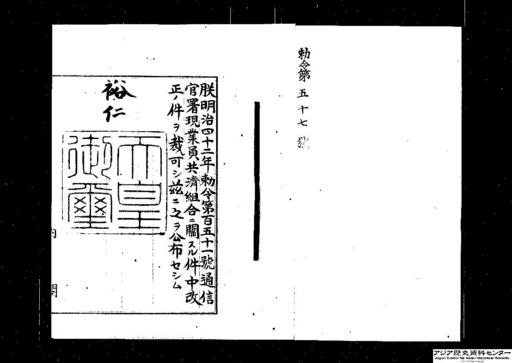 勅令第五十七號
朕明治四十二年勅令第百五十一號通信
官署現業員共濟組合ニ關スル件中改
正ノ件ヲ裁可シ茲ニ之ヲ公布セシム
裕仁
天皇
御璽
内閣
アジア歴史資料センター
Japan Center for Asian Historical Records